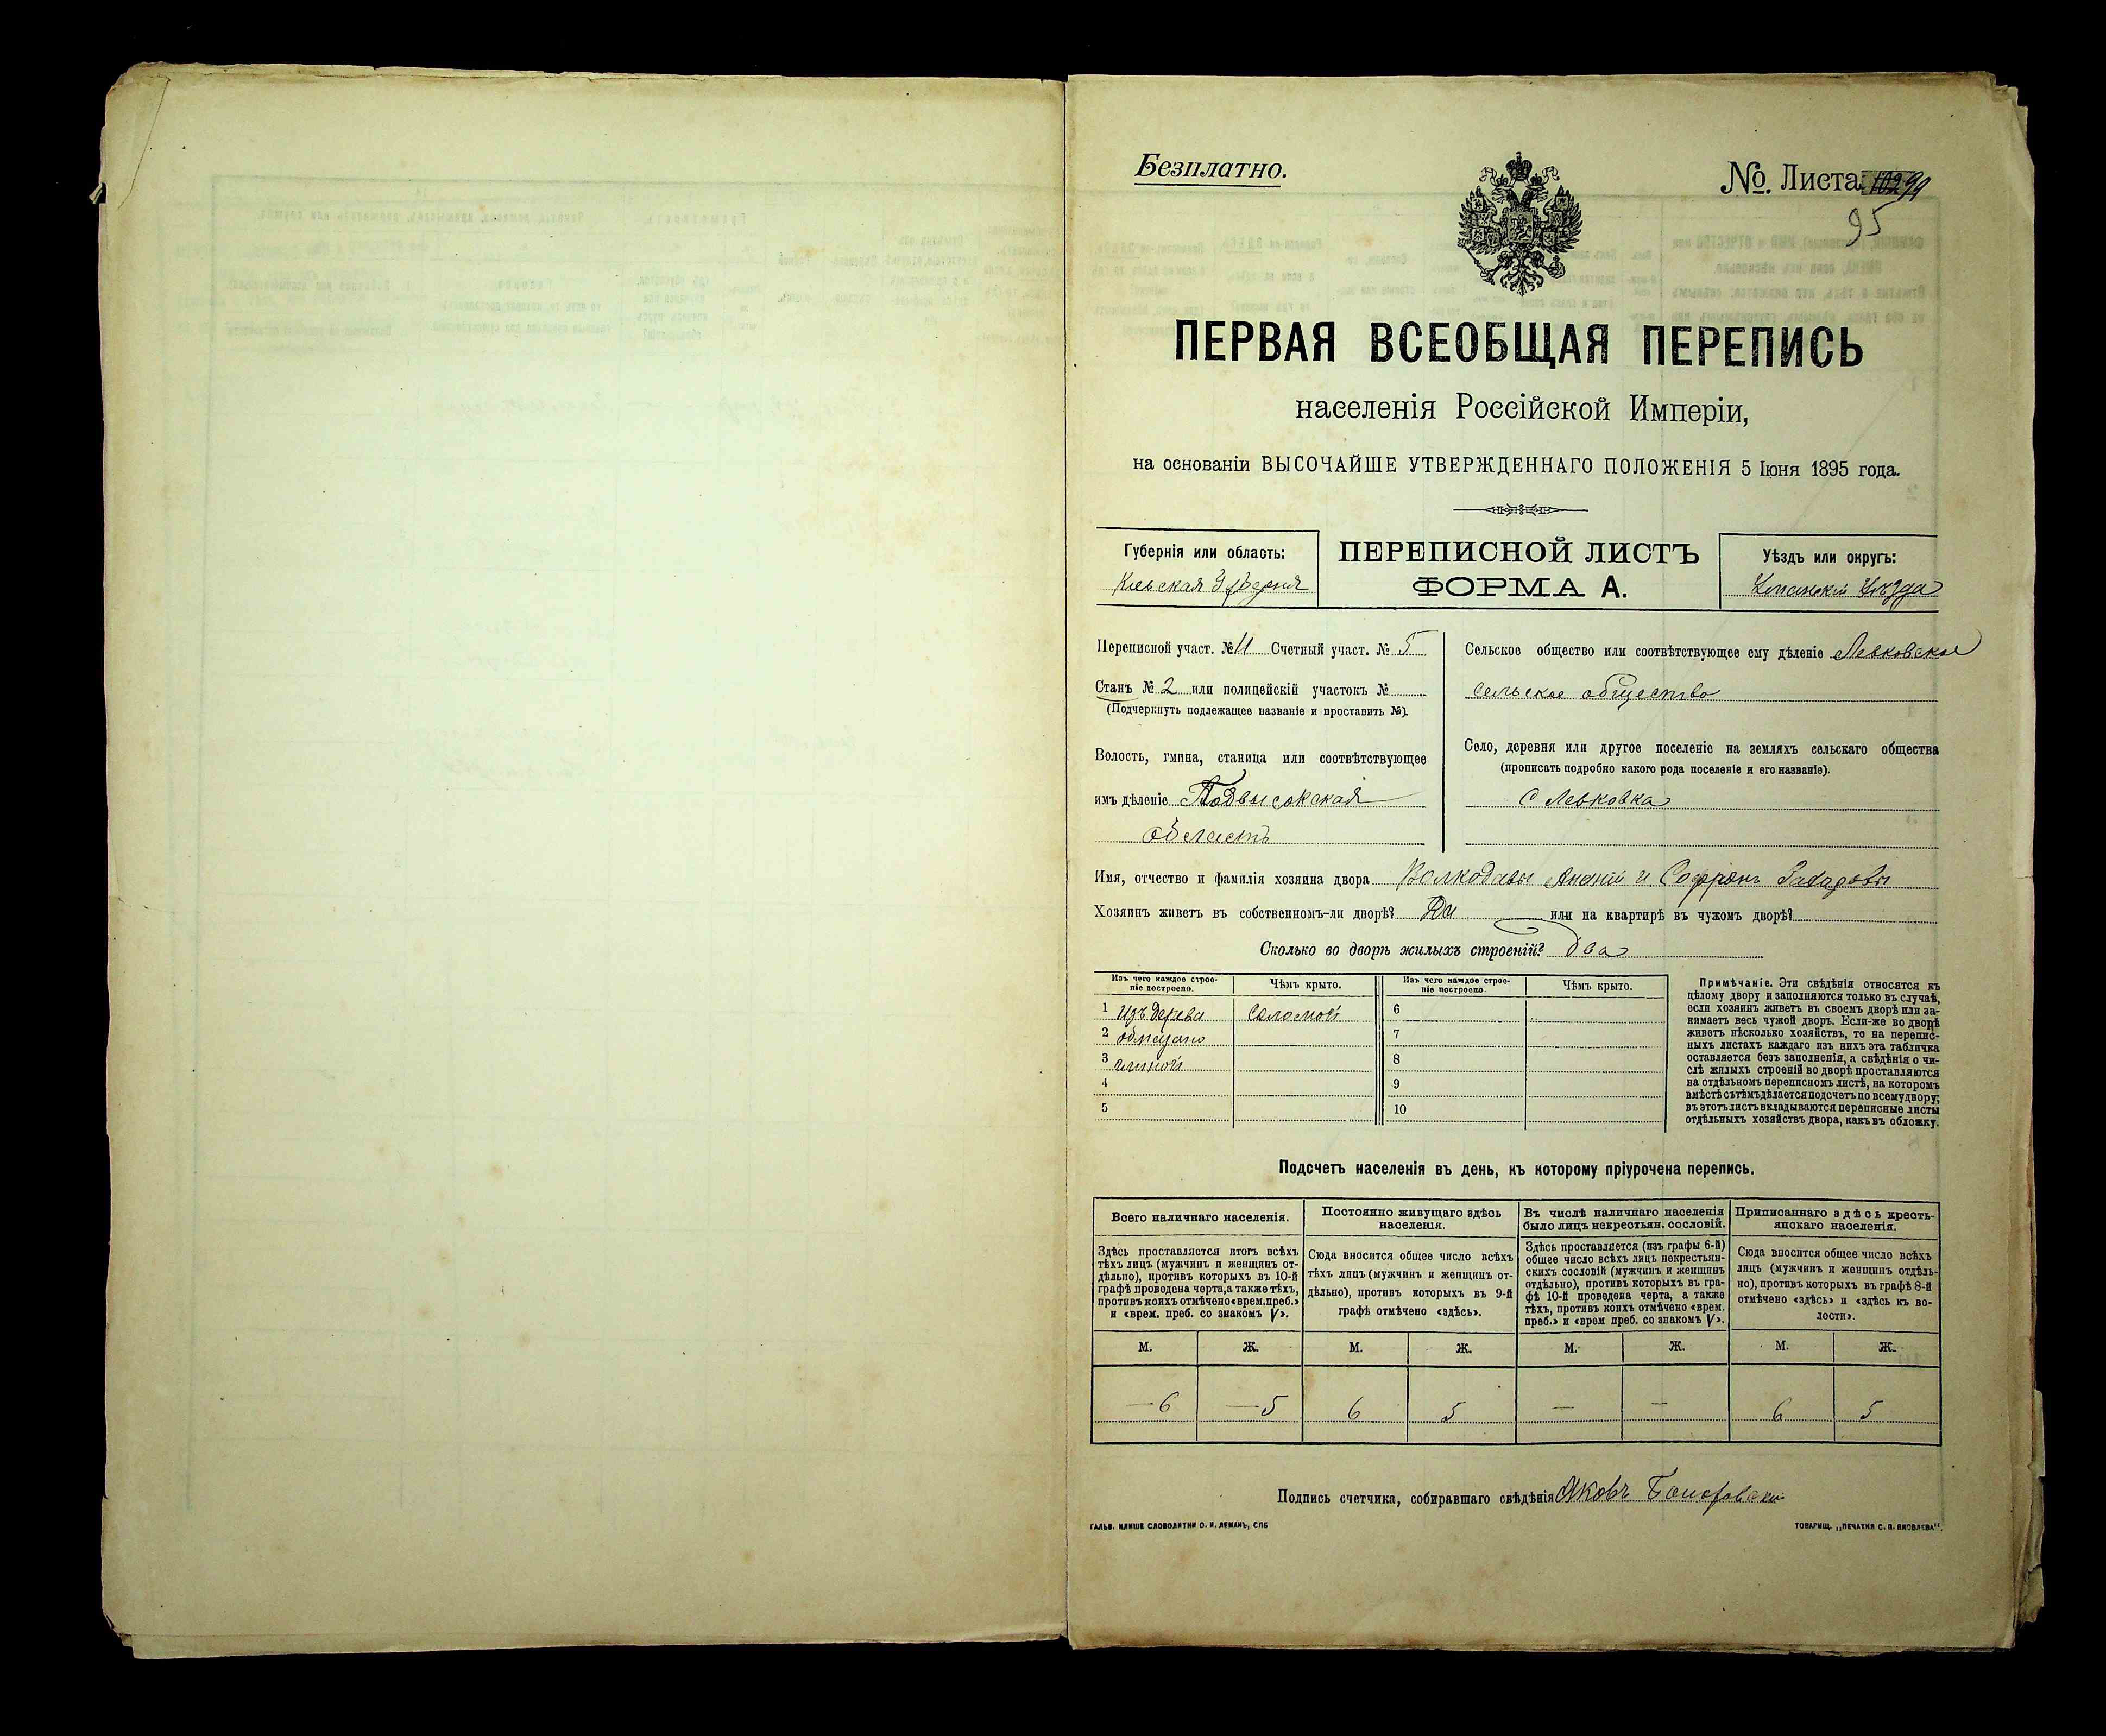 Безплатно.
№. Листа 99
95
ПЕРВАЯ ВСЕОБЩАЯ ПЕРЕПИСЬ
населенія Россійской Имперіи,
на основаніи ВЫСОЧАЙШЕ УТВЕРЖДЕННАГО ПОЛОЖЕНІЯ 5 Іюня 1895 года.
Губернія или область:
Кіевская Губернія
ПЕРЕПИСНОЙ ЛИСТЪ
ФОРМА А.
Уѣздъ или округъ:
Уманскій Уѣзда
Переписной участ. № 11 Счетный участ. № 5
Станъ № 2 или полицейскій участокъ №
(Подчеркнуть подлежащее названіе и проставить №).
Волость, гмина, станица или соотвѣтствующее
имъ дѣленіе Подвысокская
область
Сельское общество или соотвѣтствующее ему дѣленіе Левковское
сельское общество
Село, деревня или другое поселеніе на земляхъ сельскаго общества
(прописать подробно какого рода поселеніе и его названіе).
С Левковка
Имя, отчество и фамилія хозяина двора Волкодавы Ананій и Софронъ Захаровы
Хозяинъ живетъ въ собственномъ-ли дворѣ? Да или на квартирѣ въ чужомъ дворѣ?
Сколько во дворѣ жилыхъ строеній? два
Изъ чего каждое строе-
ніе построено.
Чѣмъ крыто.
Изъ чего каждое строе-
ніе построено.
Чѣмъ крыто.
1 изъ дерева соломой 6
2 обмазано 7
3 глиной 8
4 9
5 10
Примѣчаніе. Эти свѣдѣнія относятся къ
цѣлому двору и заполняются только въ случаѣ,
если хозяинъ живетъ въ своемъ дворѣ или за-
нимаетъ весь чужой дворъ. Если-же во дворѣ
живетъ нѣсколько хозяйствъ, то на перепис-
ныхъ листахъ каждаго изъ нихъ эта табличка
оставляется безъ заполненія, а свѣдѣнія о чи-
слѣ жилыхъ строеній во дворѣ проставляются
на отдѣльномъ переписномъ листѣ, на которомъ
вмѣстѣ съ тѣмъ дѣлается подсчетъ по всему двору;
въ этотъ листъ вкладываются переписные листы
отдѣльныхъ хозяйствъ двора, какъ въ обложку.
Подсчетъ населенія въ день, къ которому пріурочена перепись.
Всего наличнаго населенія.
Здѣсь проставляется итогъ всѣхъ
тѣхъ лицъ (мужчинъ и женщинъ от-
дѣльно), противъ которыхъ въ 10-й
графѣ проведена черта, а также тѣхъ,
противъ коихъ отмѣчено «врем. преб.»
и «врем. преб. со знакомъ V».
Постоянно живущаго здѣсь
населенія.
Сюда вносится общее число всѣхъ
тѣхъ лицъ (мужчинъ и женщинъ от-
дѣльно), противъ которыхъ въ 9-й
графѣ отмѣчено «здѣсь».
Въ числѣ наличнаго населенія
было лицъ некрестьян. сословій.
Здѣсь проставляется (изъ графы 6-й)
общее число всѣхъ лицъ некрестьян-
скихъ сословій (мужчинъ и женщинъ
отдѣльно), противъ которыхъ въ гра-
фѣ 10-й проведена черта, а также
тѣхъ, противъ коихъ отмѣчено «врем.
преб.» и «врем преб. со знакомъ V».
Приписаннаго здѣсь кресть-
янскаго населенія.
Сюда вносится общее число всѣхъ
лицъ (мужчинъ и женщинъ отдѣль-
но), противъ которыхъ въ графѣ 8-й
отмѣчено «здѣсь» и «здѣсь къ во-
лости».
М. Ж. М. Ж. М. Ж. М. Ж.
— 6 — 5 6 5 — — 6 5
Подпись счетчика, собиравшаго свѣдѣнія Яковъ
ГАЛЬВ. КЛИШЕ СЛОВОЛИТНИ О. И. ЛЕМАНЪ, СПБ
ТОВАРИЩ. „ПЕЧАТНЯ С. П. ЯКОВЛЕВА".